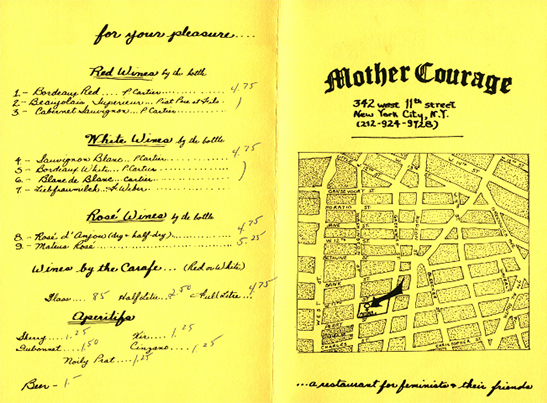 for your pleasure....
Red Wines by the bottle
1.- Bordeaux Red.... P. Cartier............ 4.75
2- Beaujolais Superieur... Piat Pere et Fils.
3- Cabernet Sauvignon... P. Cartier........
White Wines by the bottle
4.- Sauvignon Blanc.. P. Cartier............. 4.75
5- Bordeaux White... P. Cartier...........
6- Blanc de Blanc.. Cartier...........
7.- Liebfraumilch.. Weber...........
Rosé Wines by the bottle
8- Rosé d'Anjou (dry + half-dry)........... 4.75
9- Mateus Rosé.................. 5.25
Wines by the Carafe... (Red or White)
Glass.... .85 Half litre.. 2.50 Full Litre... 4.75
Aperitifs
Sherry....1.25 Kir.... 1.25
Dubonnet....1.50 Cinzano.....1.25
Noily Prat....1.25
Beer -
Mother Courage
342 west 11th street
New York City, N.Y.
(212-924-9728)
GANSEVOORT ST
HORATIO ST
JANE ST
W. 12 th
BETHUNE ST
BANK
WEST ST
PERRY
CHARLES
CHRISTOPHER
...a restaurant for feminists & their friends